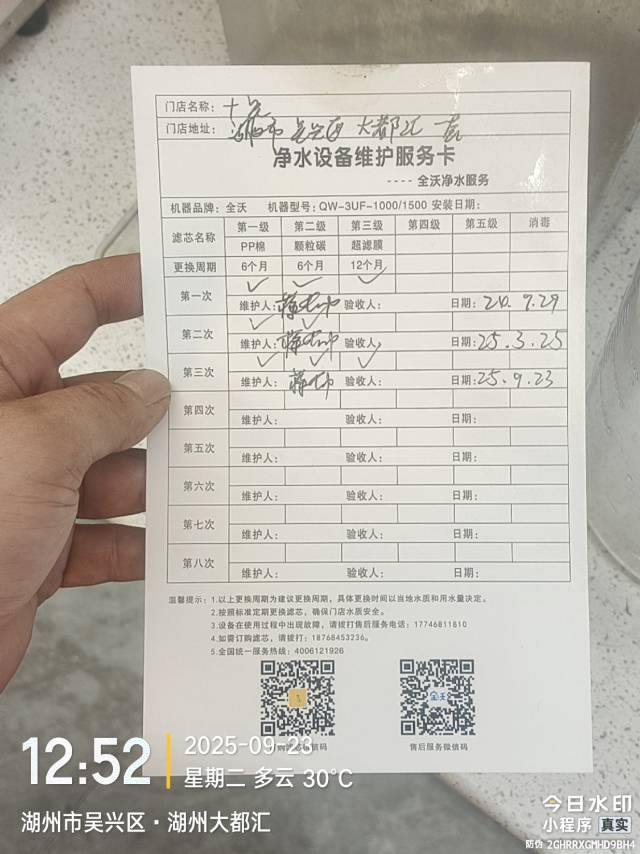 门店名称：
门店地址：湖州市 吴兴区 大都汇 店
净水设备维护服务卡
---- 全沃净水服务
机器品牌：全沃 机器型号：QW-3UF-1000/1500 安装日期：
滤芯名称 第一级 第二级 第三级 第四级 第五级 消毒
PP棉 颗粒碳 超滤膜
更换周期 6个月 6个月 12个月
第一次 ✓ ✓ ✓
维护人： 验收人： 日期：24.9.29
第二次 ✓ ✓
维护人： 验收人： 日期：25.3.25
第三次 ✓ ✓ ✓
维护人： 验收人： 日期：25.9.23
第四次
维护人： 验收人： 日期：
第五次
维护人： 验收人： 日期：
第六次
维护人： 验收人： 日期：
第七次
维护人： 验收人： 日期：
第八次
维护人： 验收人： 日期：
温馨提示：1.以上更换周期为建议更换周期，具体更换时间以当地水质和用水量决定。
2.按照标准定期更换滤芯，确保门店水质安全。
3.设备在使用过程中出现故障，请拨打售后服务电话：17746811810
4.如需订购滤芯，请拨打：18768453236。
5.全国统一服务热线：4006121926
微信码 售后服务微信码
12:52
2025-09-23
星期二 多云 30℃
湖州市吴兴区·湖州大都汇
今日水印
小程序 真实
防伪 2GHRRXGMHD9BH4